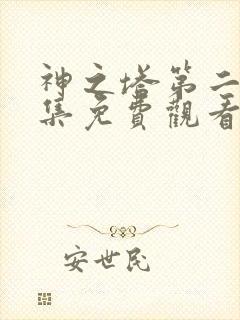 神之塔第二
集免費觀看
安世民